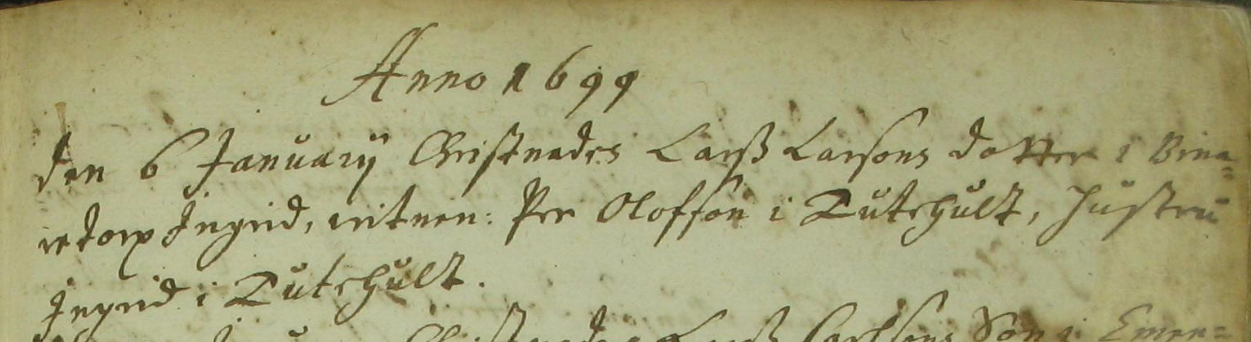 Anno 1699
den 6 Januarij Christnades Larß Larsons dotter i Bina=
retorp Ingrid, witnen: Per Olofson i Dutehult, Hustru
Ingrid i Dutehult.
Christnades Larß Carlsons Son i Emer=